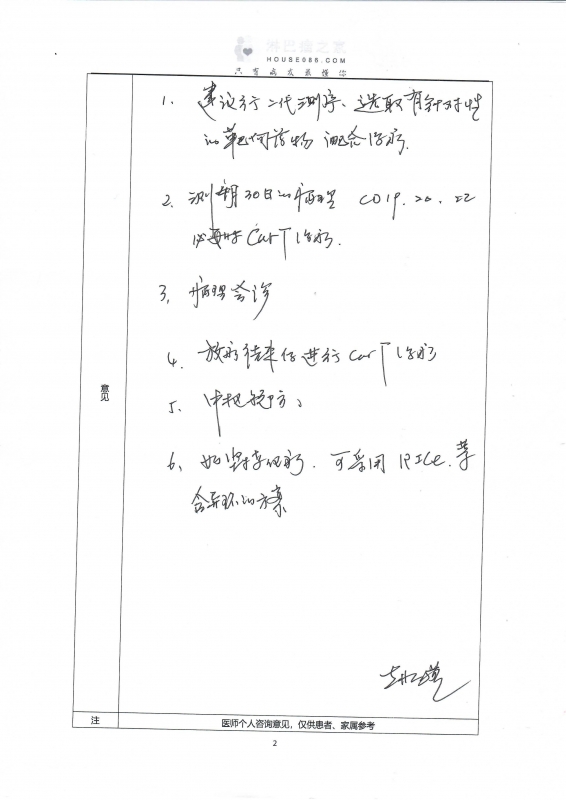 淋巴瘤之家
HOUSE086.COM
只有病友最懂你
1. 建议行二代测序、选取有针对性
的靶向药物 治疗.
2. 测 30日的病理 CD19. 20. 22
必要时 CarT 治疗.
3. 病理会诊
4. 放疗结束后进行 CarT 治疗
5. 中枢预防
6. 如坚持化疗. 可采用 RICE. 等
含异环的方案
意见
注
医师个人咨询意见，仅供患者、家属参考
2